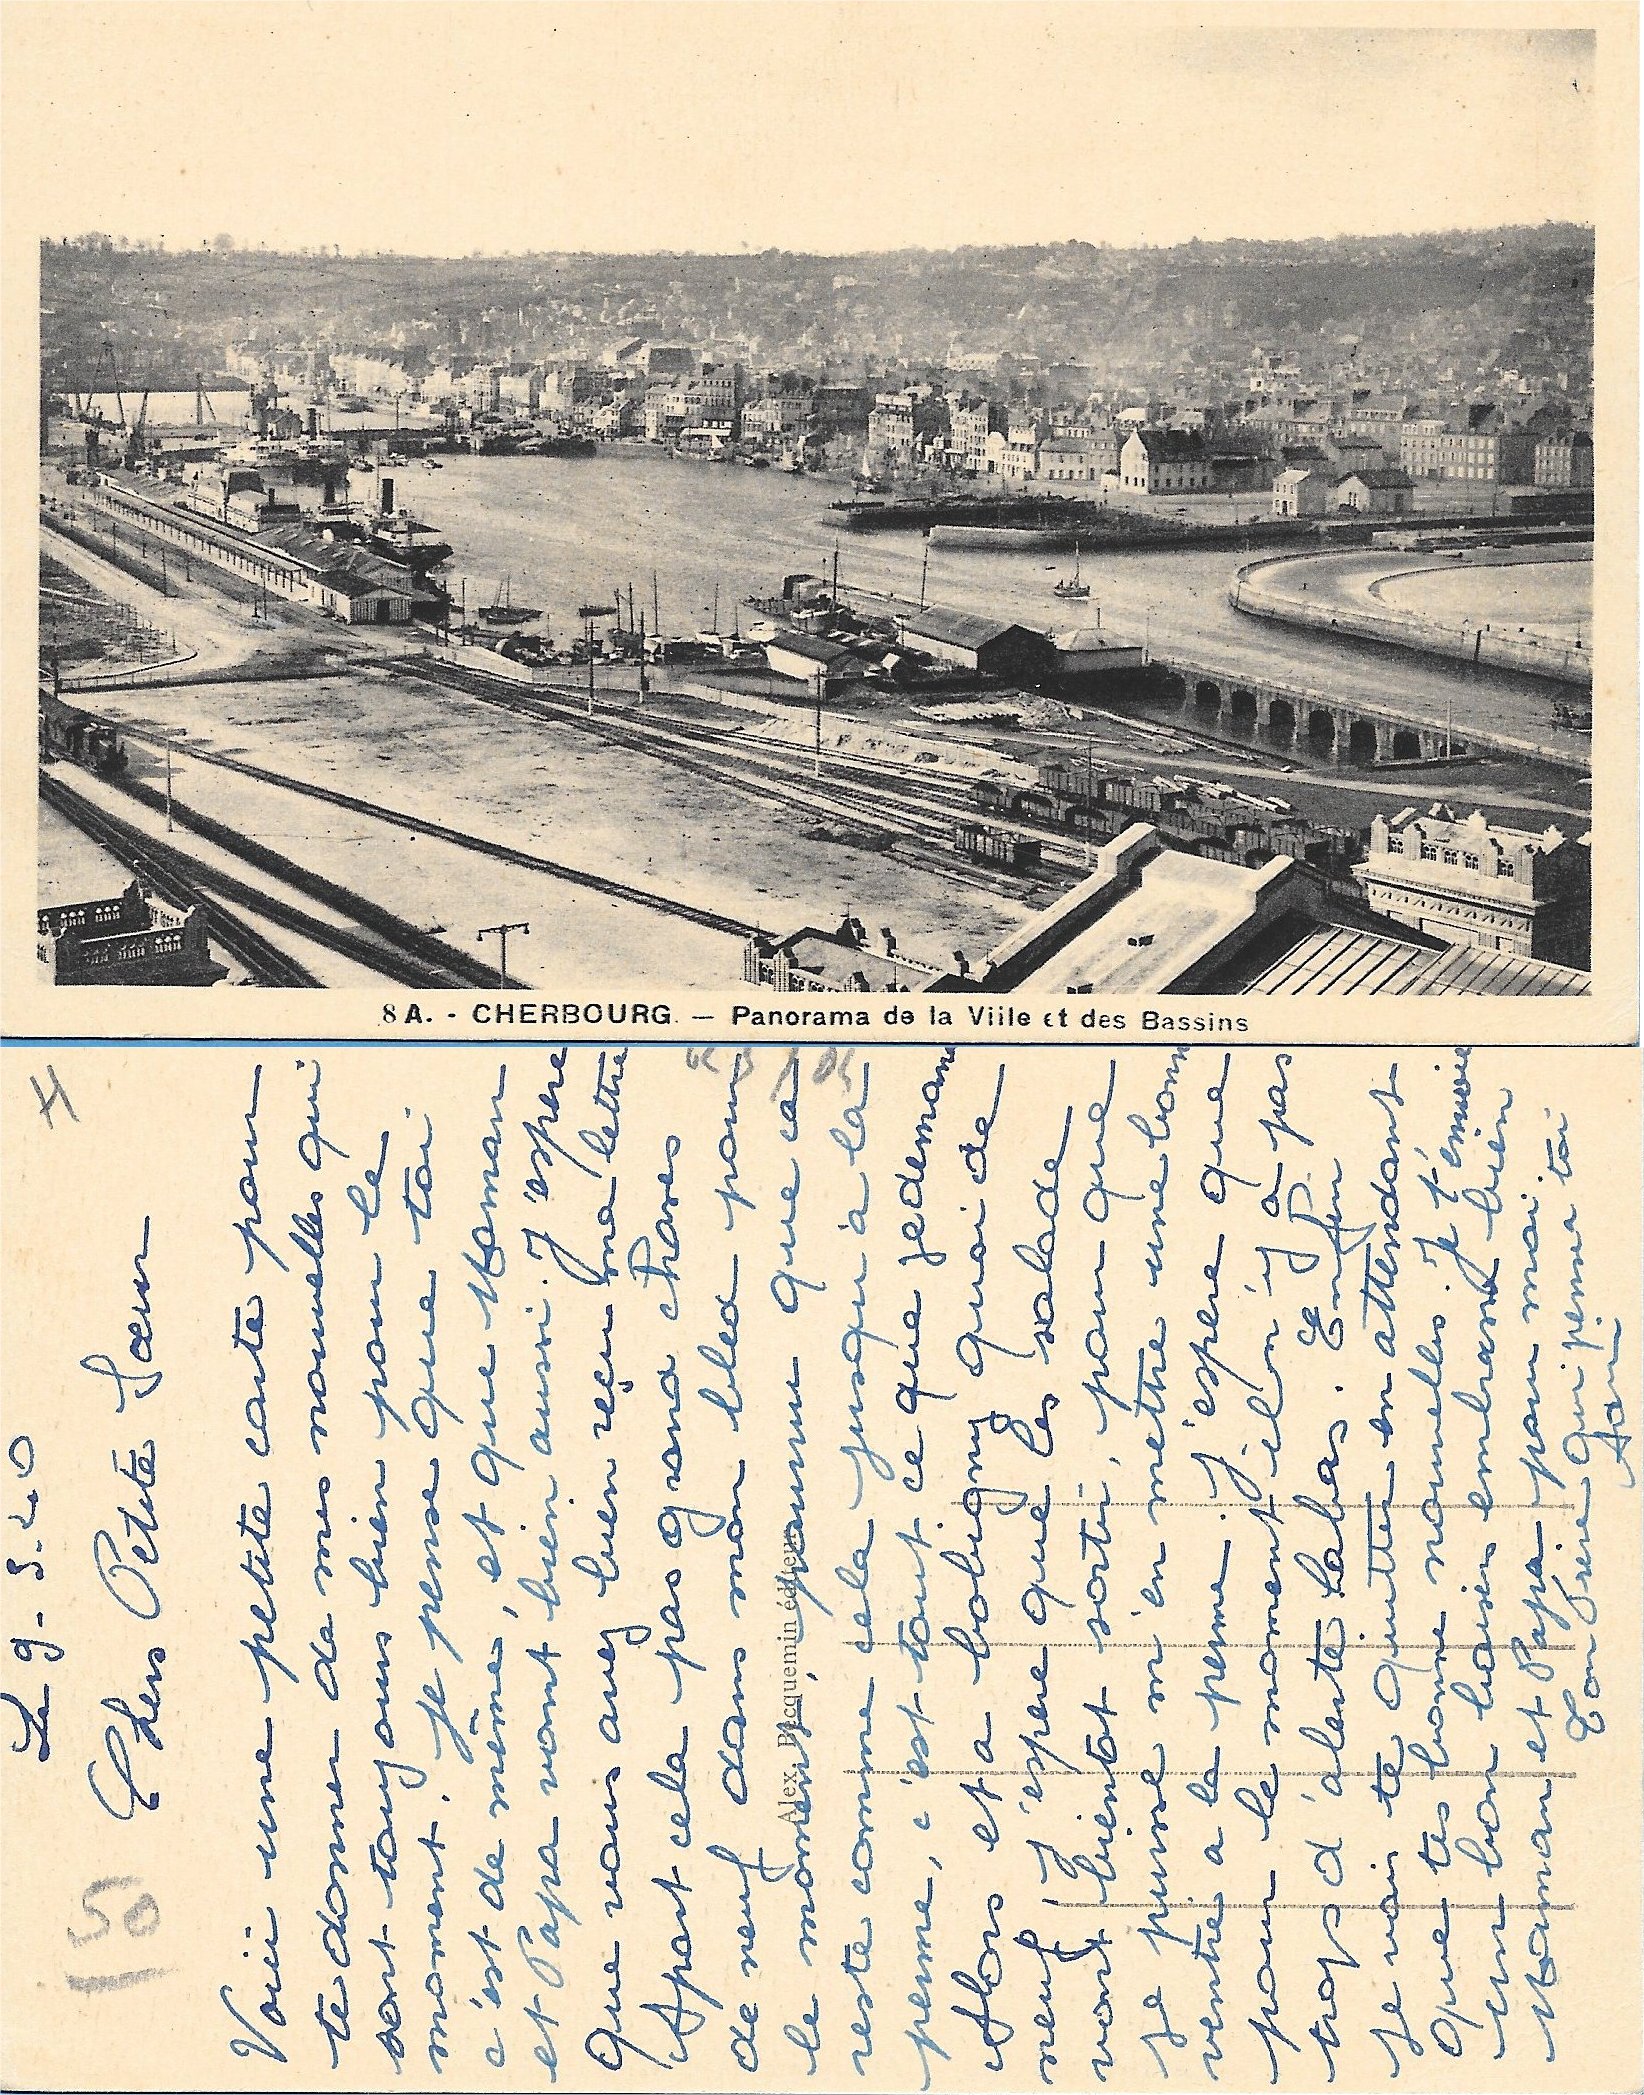 8 A. - CHERBOURG. — Panorama de la Viile et des Bassins
H
50
Le 9-5-40
Chers Petite Sœur
Voici une petite carte pour
te donner de mes nouvelles qui
sont toujours bien pour le
moment. je pense que toi
c'est de même, et que Maman
et Papa vont bien aussi. J'espere
que vous avez bien reçu ma lettre
Apart cela pas grand choses
de neuf dans mon bled pour
le moment, pourvu que ca
reste comme cela jusqu'a la
perme, c'est tout ce que je demand
Alors et a boligny quoi de
neuf, j'espere que les salade
vont bientot sorti, pour que
je puisse m'en mettre une bonn
ventre a la perme. J'espere que
pour le moment il n'y a pas
trops d'alerte labas. Enfin
je vais te quitter en attendant
que tes bonne nouvelles. Je t'envoie
un bon baisers embrasse bien
Maman et Papa pour moi.
Ton Frere qui pense a toi
Alex. Becquemin éditeur